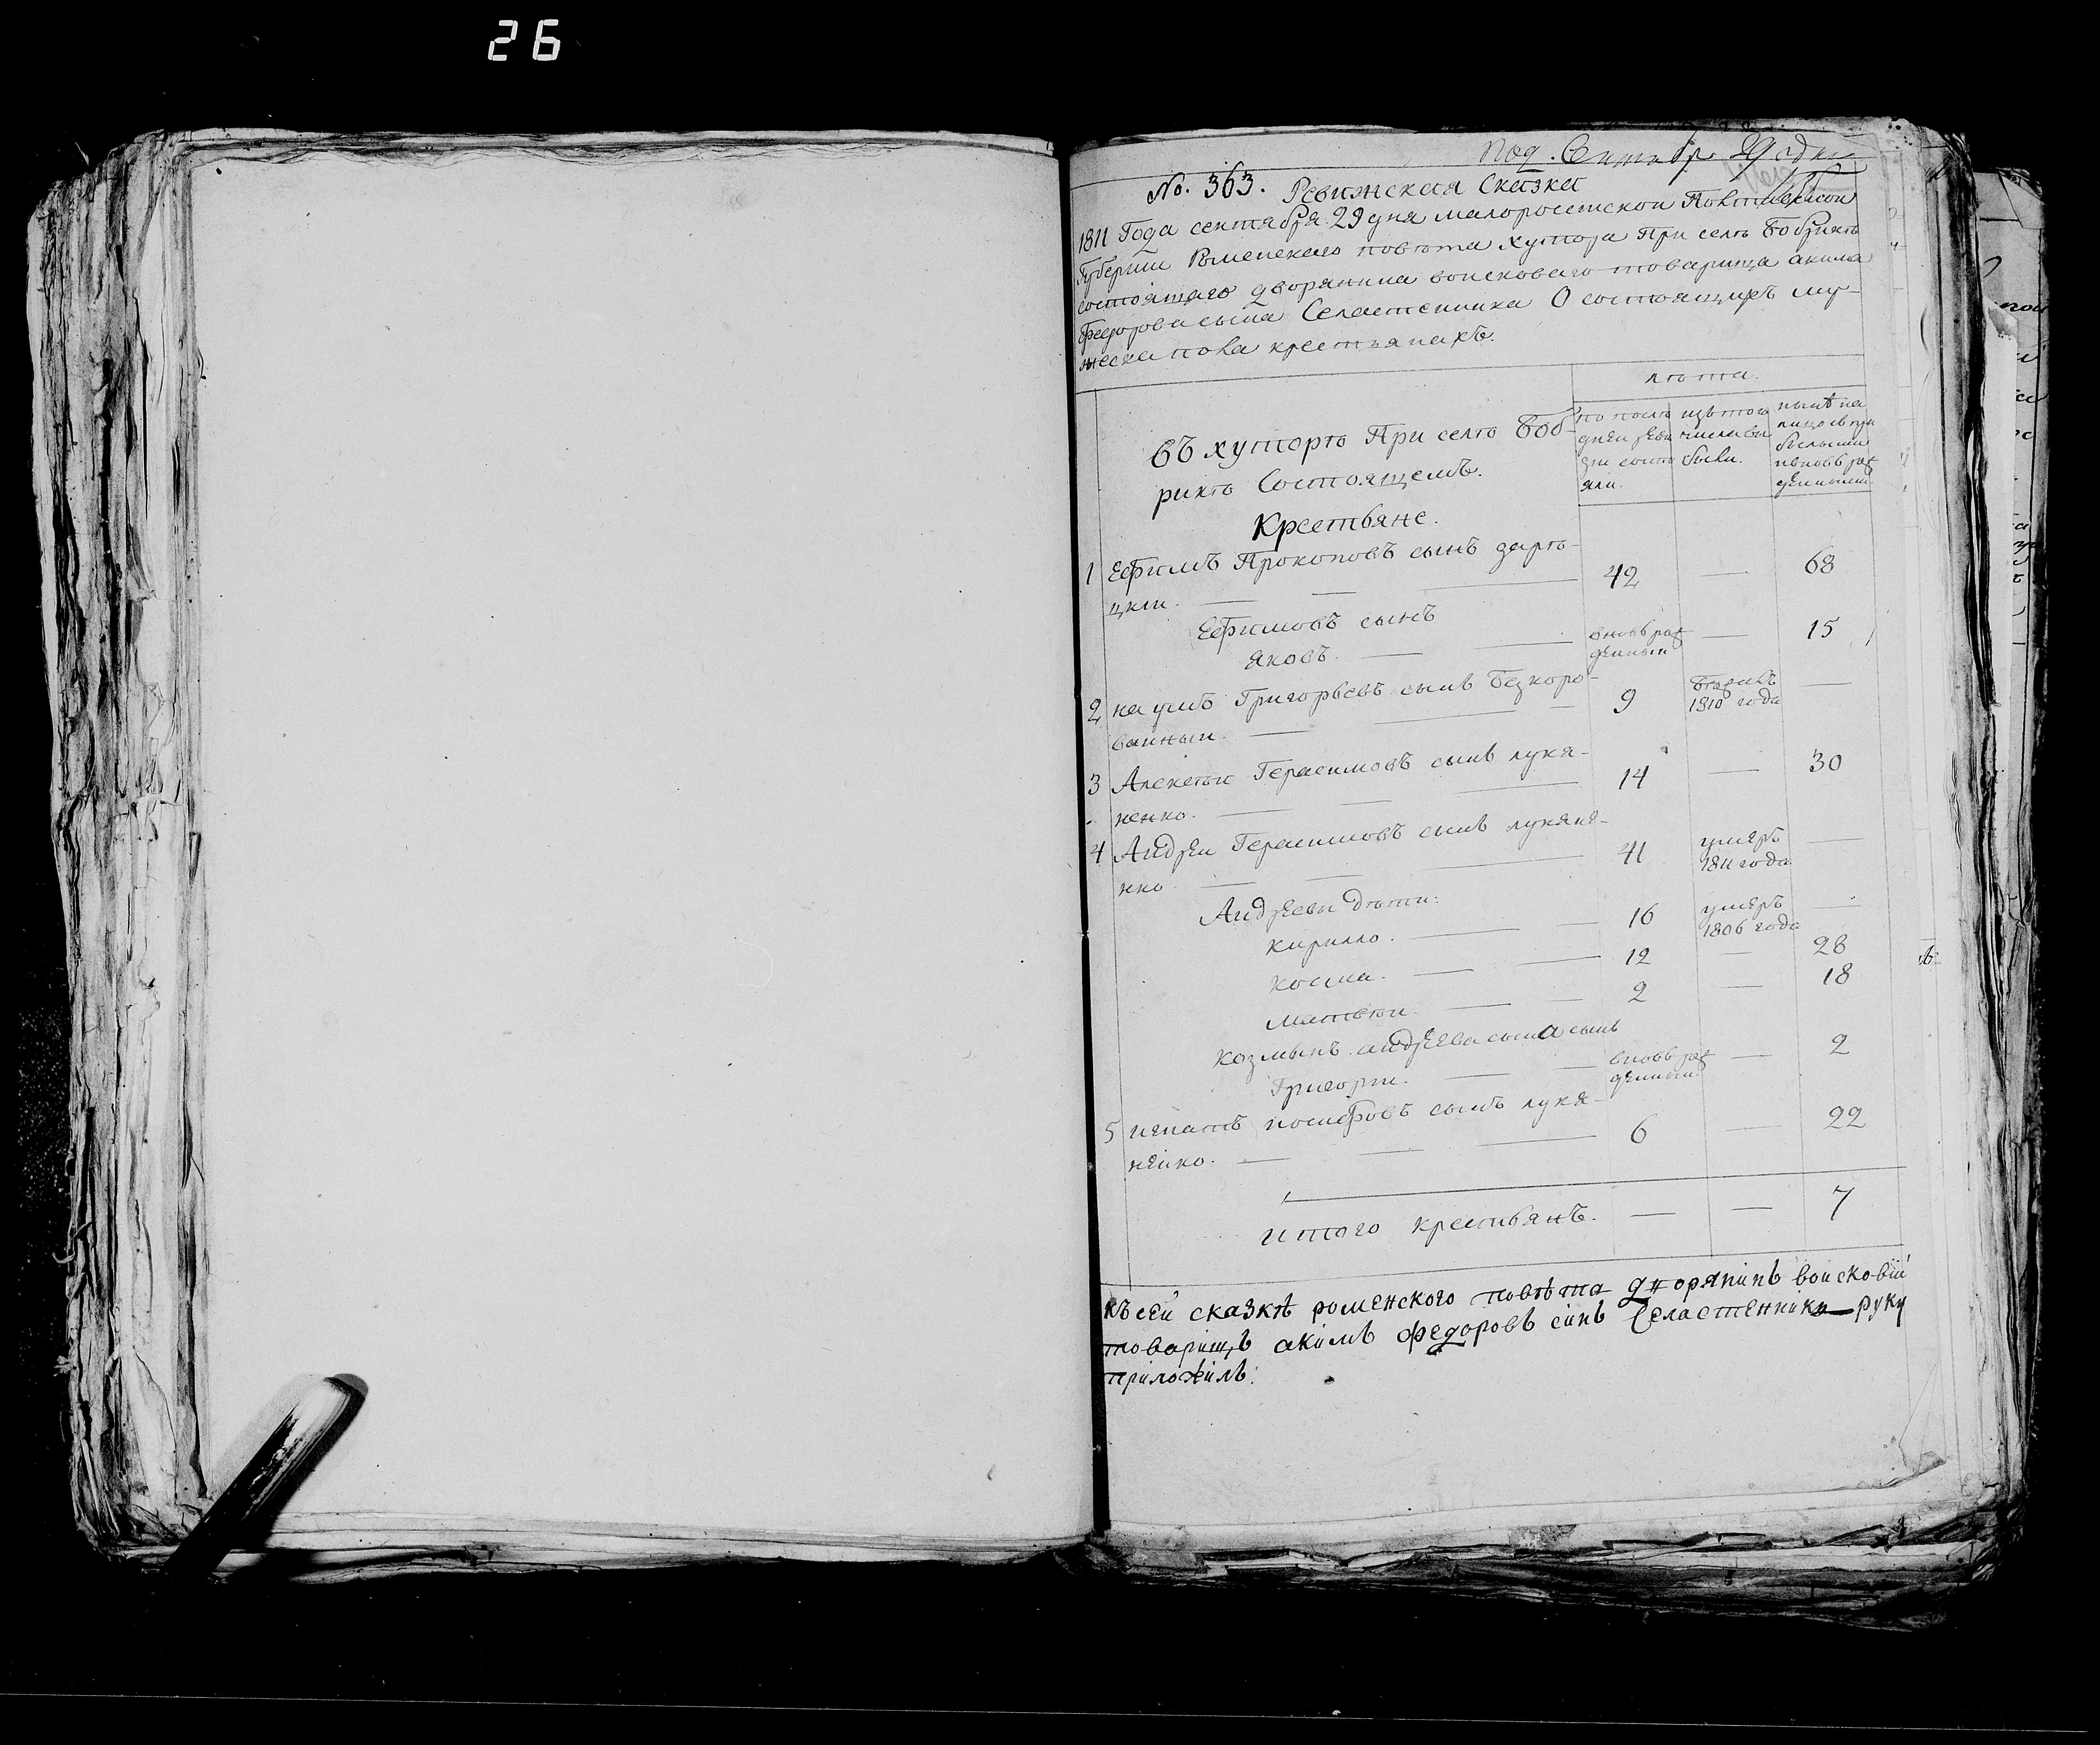 26
Под. Сентябр. 29 дня
No. 363. Ревижская Сказка
1811 Года сентября 29 дня малоросетской Полтавской
Губернии Роменскаго повѣта хутора При селѣ Бобрикѣ
состоящаго дворянина воисковаго товарища акима
Федорова сына Селастенника О состоящихъ му-
жеска пола крестьянахъ.
лѣта.
въ хуторѣ При селѣ Боб-
рикѣ Состоящемъ.
по послѣ
дней реви
зіи состо
яли.
изъ того
числа вы
были.
нынѣ на
лицо съ при
былыми
и вновь рож
денными
Крестьяне.
1 Ефимъ Прокоповъ сынъ зарѣ-
цкіи. — — — 42 — 68
Ефимовъ сынъ
яковъ. — — вновь рож
денный — 15
2 наумъ Григорьевъ сынъ Безкоро-
вайныи. — — — 9 бѣжавъ
1810 года —
3 Алексѣи Герасимовъ сынъ лукя-
ненко. — — — 14 — 30
4 Андреи Герасимовъ сынъ лукяне-
нко — — — 41 умеръ
1811 года —
Андреевы дѣти:
кирилло. — — 16 умеръ
1806 года —
косма. — — 12 — 28
матвѣи. — — 2 — 18
козминъ андреева сына сынъ
Григории. — — вновь рож
денный. — 2
5 игнатъ иосифовъ сынъ лукя-
ненко. — — — 6 — 22
итого крестьянъ. — — 7
къ сей сказкѣ роменского повѣта дворянинъ воисковій
товарищъ акимъ федоровъ синъ Селастенникъ руку
приложилъ: